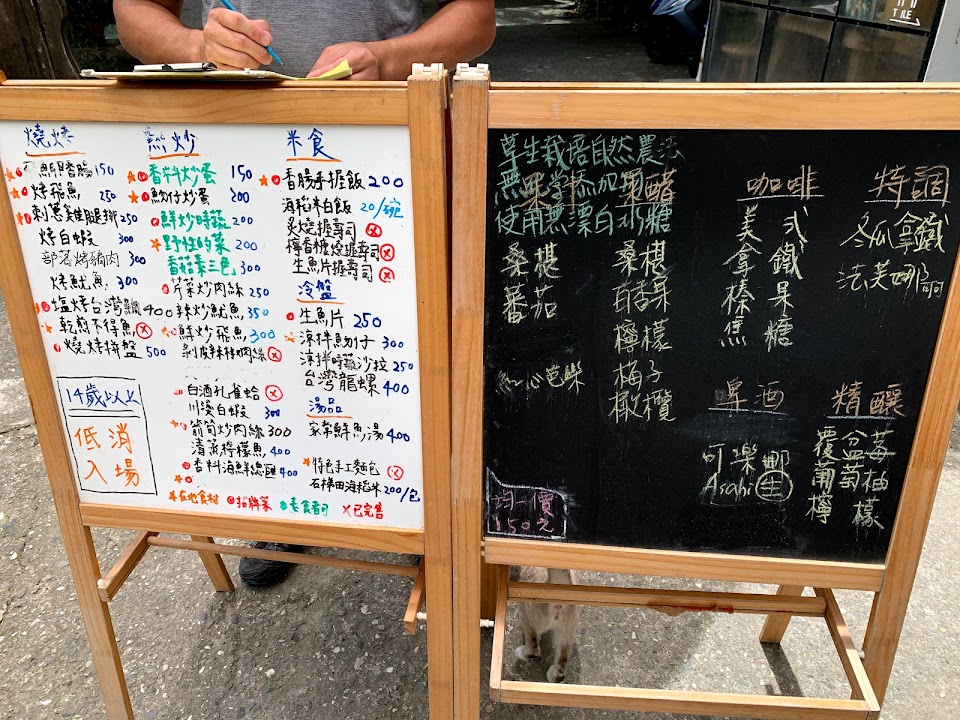 燒烤
香腸 150
烤飛魚 250
刺蔥雞腿排 250
烤白蝦 300
部落烤豬肉 300
烤魷魚 300
塩烤台灣鯛 400
乾煎不得魚
燒烤拼盤 500
14歲以上
低消
入場
熱炒
香料炒蛋 150
魩仔炒蛋 200
鮮炒時蔬 200
野性的菜 200
香菇素三色 300
芹菜炒肉絲 250
辣炒魷魚 350
鮮炒飛魚 300
剝皮辣椒肉絲
白酒孔雀蛤
川燙白蝦 300
箭筍炒肉絲 300
清蒸檸檬魚 400
香料海鮮總匯 400
米食
香腸手握飯 200
海稻米白飯 20/碗
炙燒握壽司
檸香糖燒握壽司
生魚片握壽司
冷盤
生魚片 250
涼拌魩仔 300
涼拌時蔬沙拉 250
台灣龍螺 400
湯品
家常鮮魚湯 400
特色手工麵包
石梯田海稻米 200/包
在地食材 招牌菜 素食者可 X已完售
草生栽培自然農法
無化學添加
使用無漂白砂糖
果汁
桑椹
番茄
紅心芭樂
均一價
150元
果醋
桑椹
百香果
檸檬
梅子
橄欖
咖啡
美式
拿鐵
榛果
焦糖
特調
冬瓜拿鐵
法芙娜
啤酒
可樂娜
Asahi 生
精釀
覆盆莓
葡萄柚
檸檬